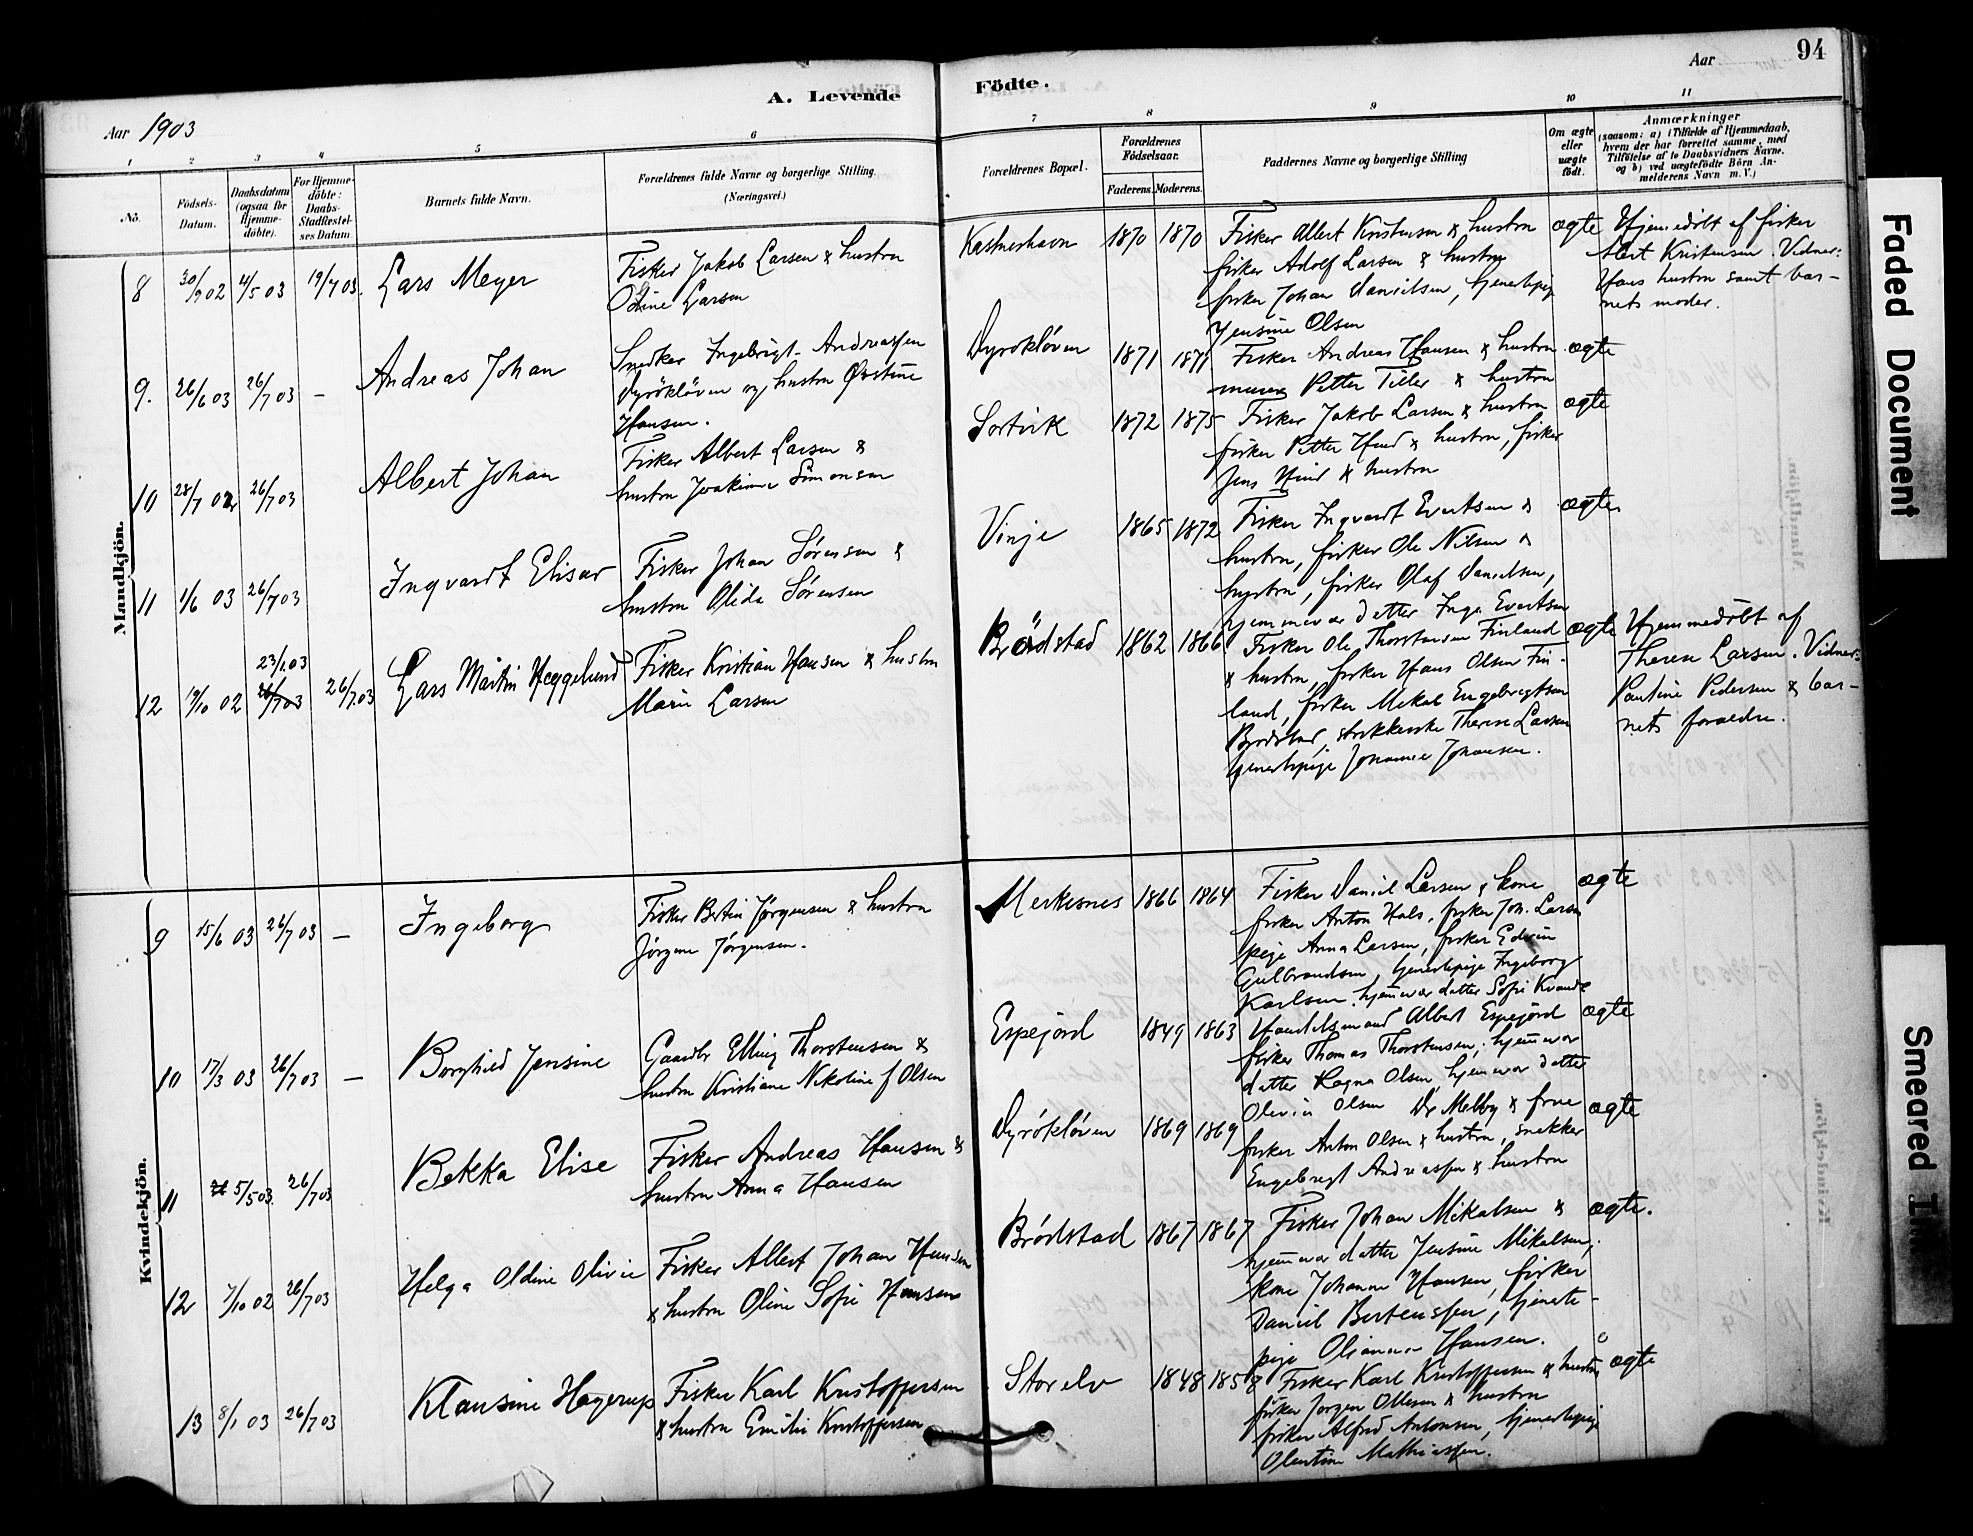 94
Aar
A. Levende Födte.
Aar 1903
1 2 3 4 5 6 7 8 9 10 11
No. Födsels-Datum. Daabsdatum (ogsaa for Hjemme-döbte). For Hjemme-döbte: Daabs-Stadfæstel-ses Datum Barnets fulde Navn. Forældrenes fulde Navne og borgerlige Stilling. (Næringsvei.) Forældrenes Bopæl. Forældrenes Födselsaar. Faderens. Moderens. Faddernes Navne og borgerlige Stilling Om ægte eller uægte födt. Anmærkninger (saasom: a) i Tilfælde af Hjemmedaab, hvem der har forrettet samme, med Tilföielse af to Daabsvidners Navne, og b) ved uægtefödte Börn An-melderens Navn m. V.)
Mandkjön.
8 30/9 02 4/5 03 19/7 03. Lars Meyer
Fisker Jakob Larsen & hustru
Odine Larsen
Kastneshavn 1870 1870
Fisker Albert Kristensen & hustru
fisker Adolf Larsen & hustru
fisker Johan Danielsen, tjenestepig
Jensine Olsen
ægte
Hjemedöbt af fisker
Albert Kristensen. Vidner:
Hans hustru samt bar-
nets moder.
9. 26/6 03 26/7 03 - Andreas Johan
Snedker Ingebrigt Andreassen
Dyröklöven og hustru
Hansen.
Dyröklöven 1871 1871
Fisker Andreas Hansen & hustru
murer Petter Tiller & hustru
ægte
10 28/7 02 26/7 03 Albert Johan
Fisker Albert Larsen &
hustru Joakime Simonsen
Sörtvik 1872 1875
Fisker Jakob Larsen & hustru
fisker Petter Hind & hustru, fisker
Jens Hind & hustru
ægte
11 1/6 03 26/7 03 Ingvardt Elisar
Fisker Johan Sörensen &
hustru Olida Sörensen
Vinje 1865 1872
Fisker Ingvardt Evertsen &
hustru, fisker Ole Nilsen &
hustru, fisker Olaf Danielsen,
hjemmevær datter Inga Evertsen
ægte
12 19/10 02 23/1 03 26/7 03 26/7 03 Lars Martin Heggelund
Fisker Kristian Hansen & hustru
Marie Larsen
Brödstad 1862 1866
Fisker Ole Thorstensen Finland
& hustru, fisker Hans Olsen Fin-
land, fisker Mikal Engebrigtsen
Brödstad, strikkerske Therese Larsen
tjenestepige Johanna Johansen.
ægte
Hjemmedöbt af
Therese Larsen. Vidner:
Pauline Pedersen & bar-
nets forældre.
Kvindekjön.
9 15/6 03 26/7 03 - Ingeborg
Fisker Bertin Jörgensen & hustru
Jörgine Jörgensen.
Merkesnes 1866 1864
Fisker Daniel Larsen & kone
fisker Anton Hals, fisker Joh. Larsen
pige Anna Larsen, fisker Edvin
Gulbrandsen, tjenestepige Ingeborg
Karlsen, hjemvær datter Sofie Kvande
ægte
10 17/3 03 26/7 03 - Borghild Jensine
Gaardbr Elling Thorstensen &
hustru Kristiane Nikoline f Olsen
Espejord 1849 1863
Handelsmand Albert Espejord
fisker Thomas Thorstensen, hjemvær
datter Ragna Olsen, hjemvær datter
Olevia Olsen
ægte
11 5/5 03 26/7 03 - Bekka Elise
Fisker Andreas Hansen &
hustru Anna Hansen
Dyröklöven 1869 1869
Dr Melby & frue
fisker Anton Olsen & hustru, snekker
Engebregt Andreassen & hustru
ægte
12 7/10 02 26/7 03 Helga Oldine Olivie
Fisker Albert Johan Hansen
& hustru Oline Sofie Hansen
Brödstad 1867 1867
Fisker Johan Mikalsen &
hjemvær datter Jensine Mikalsen,
kone Johanna Hansen, fisker
Daniel Bertenssen, tjeneste-
pige Olianna Hansen.
ægte.
13 8/1 03 26/7 03 Klausine Hagerup
Fisker Karl Kristoffersen
& hustru Emilie Kristoffersen
Storelv 1848 1858
Fisker Karl Kristoffersen & hustru
fisker Jörgen Ollesen & hustru
fisker Alfred Antonsen, tjenestepige
Olentine Mathiassen.
ægte
Faded Document
Smeared In